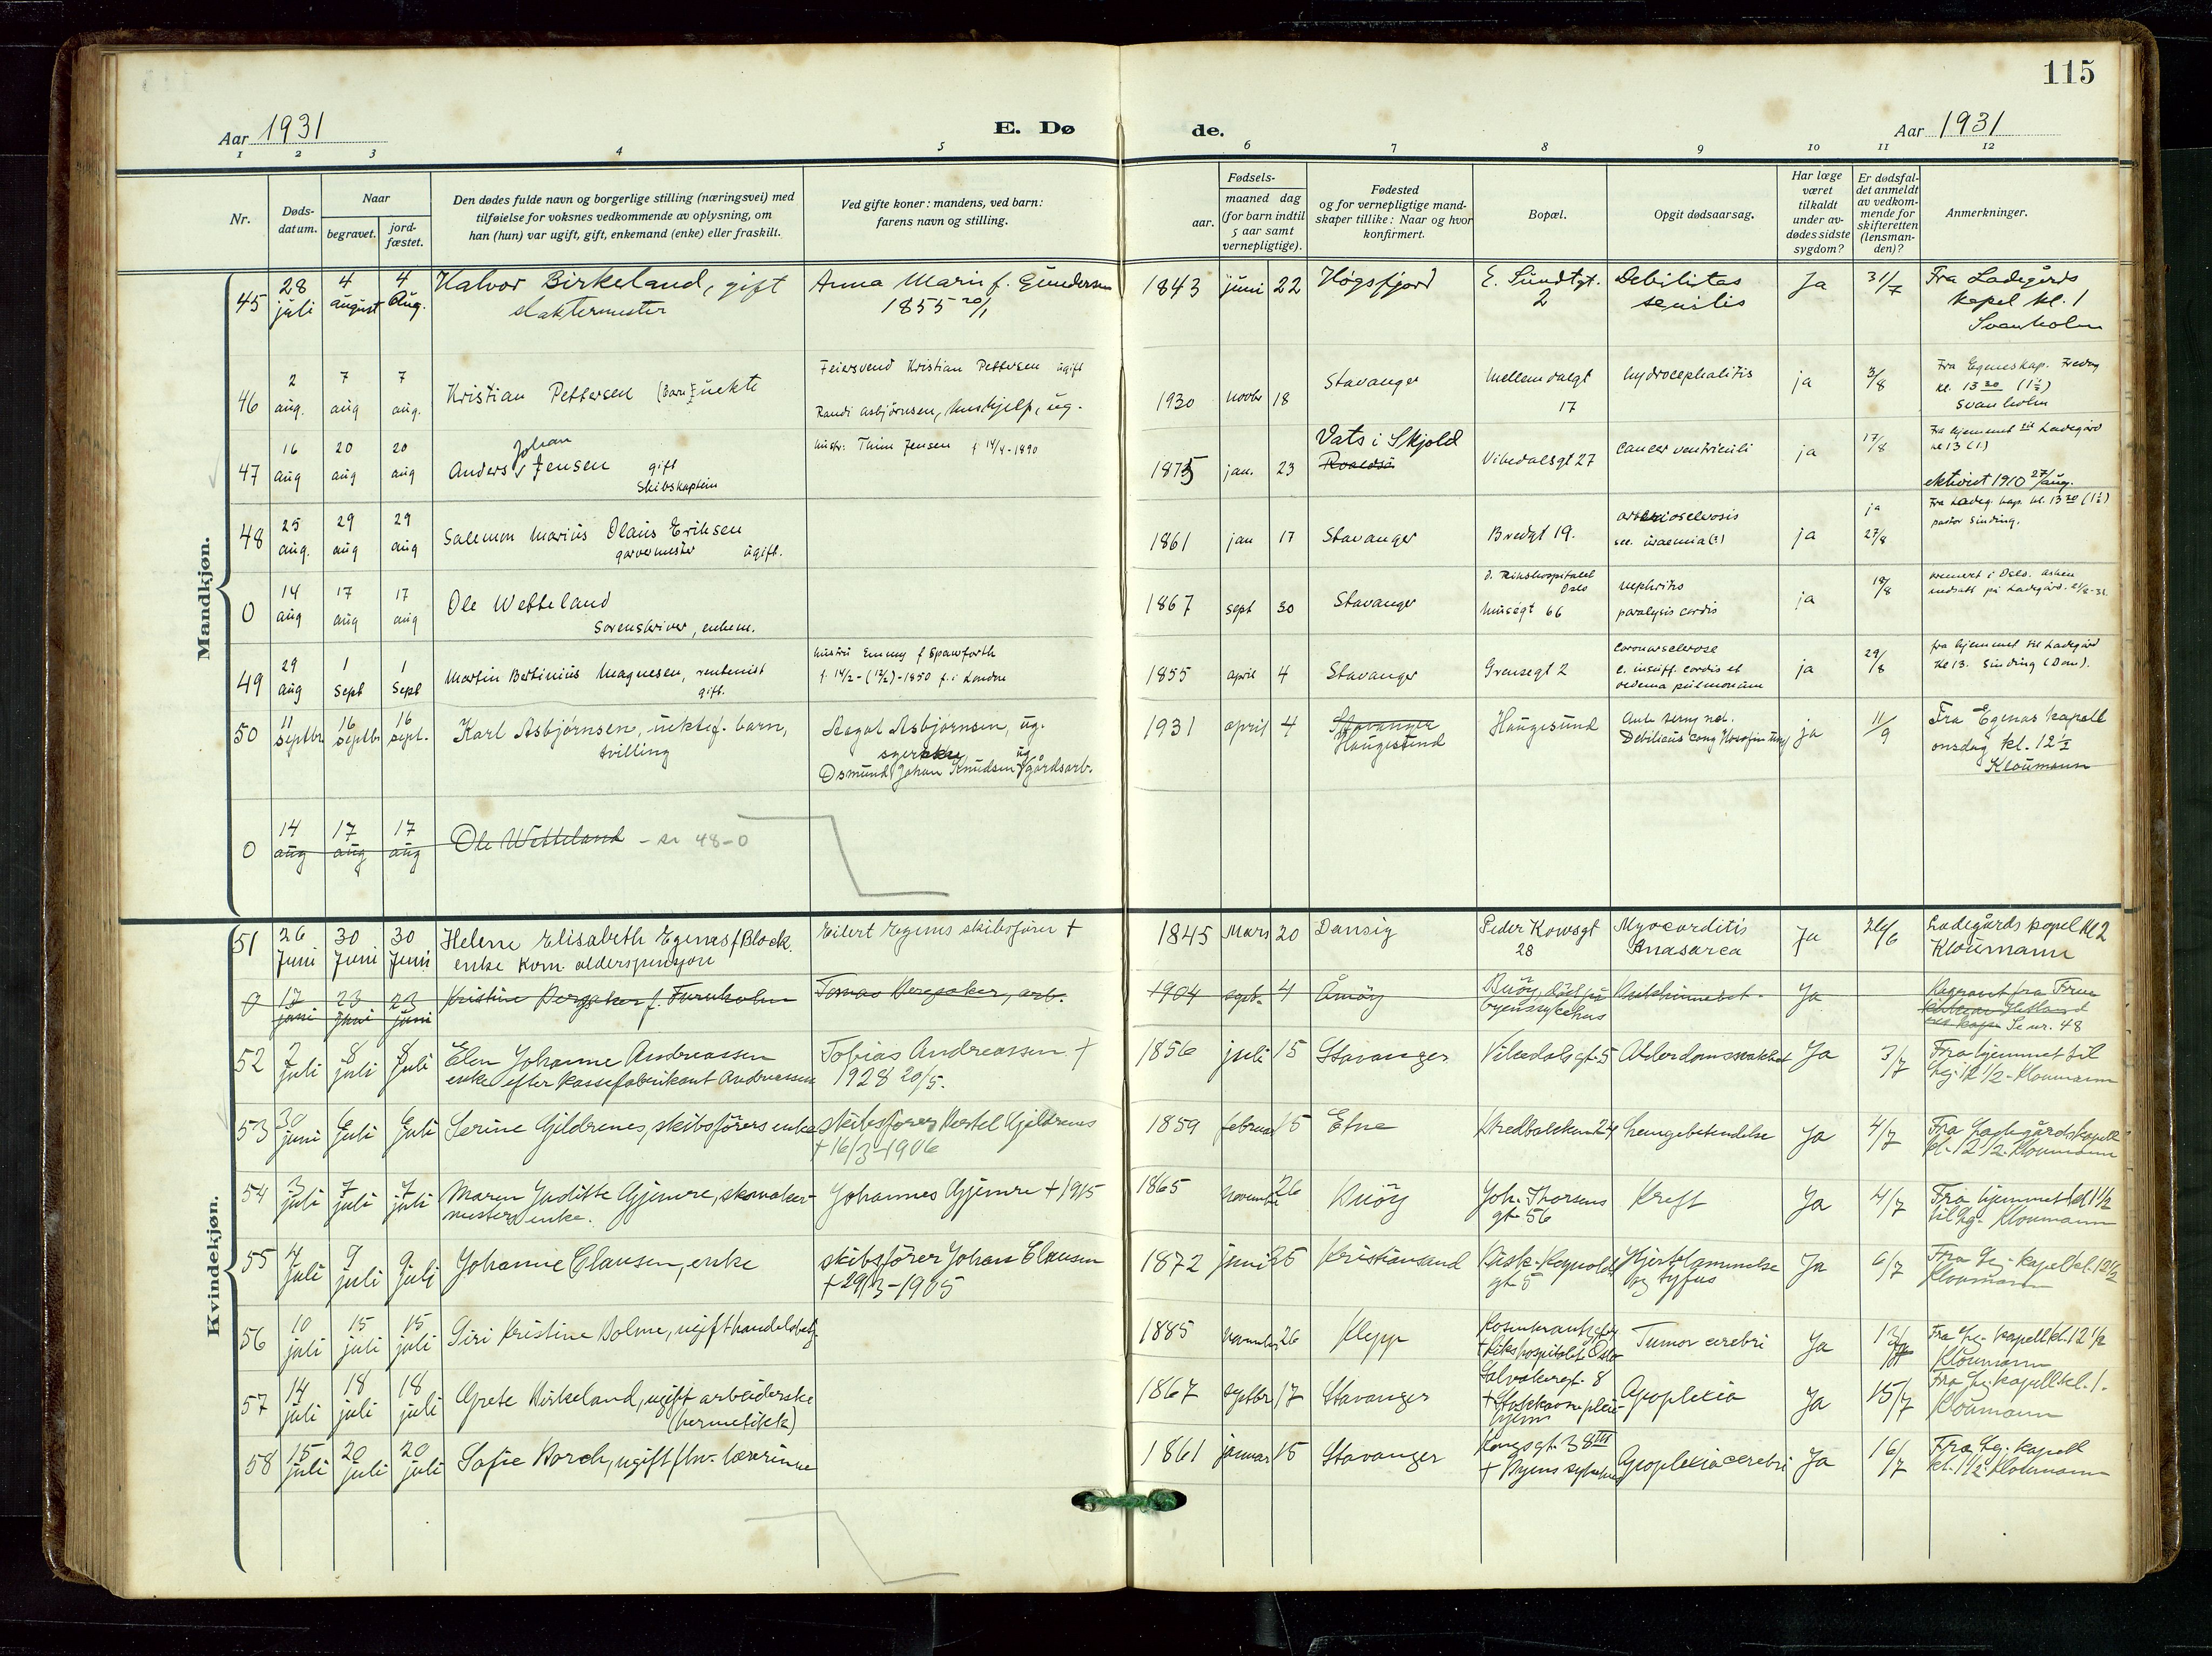 115
Aar 1931
E. Dø
de.
Aar 1931
1 2 3 4 5 6 7 8 9 10 11 12
Nr.
Døds-
datum.
Naar
begravet.
jord-
fæstet.
Den dødes fulde navn og borgerlige stilling (næringsvei) med
tilføielse for voksnes vedkommende av oplysning, om
han (hun) var ugift, gift, enkemand (enke) eller fraskilt.
Ved gifte koner: mandens, ved barn:
farens navn og stilling.
Fødsels-
aar.
maaned dag
(for barn indtil
5 aar samt
vernepligtige).
Fødested
og for vernepligtige mand-
skaper tillike: Naar og hvor
konfirmert.
Bopæl.
Opgit dødsaarsag.
Har læge
været
tilkaldt
under av-
dødes sidste
sygdom?
Er dødsfal-
det anmeldt
av vedkom-
mende for
skifteretten
(lensman-
den)?
Anmerkninger.
Mandkjøn.
45 28 juli 4 august 4 Aug. Halvor Birkeland, gift
slaktermester
Anna Marie f. Gundersen
1855 20/1
1843 juni 22 Høgsfjord E. Sundtgt.
2
Debilitas
senilis
Ja 31/7 Fra Ladegårds
kapel kl. 1
Svanholm
46 2 aug. 7 aug 7 aug. Kristian Pettersen (Barn) uekte
Feiersvend Kristian Pettersen ugift
Randi Asbjørnsen, hushjelp, ug.
1930 novbr 18 Stavanger Mellemdalgt
17
hydrocephalitis ja 3/8 Fra Egeneskap. Fredag
kl. 13 30 (1½)
Svanholm
47 16 aug 20 aug 20 aug Anders Johan Jensen gift
Skibskaptein
hustr: Thim Jensen f 14/4-1890
1875 jan. 23 Vats i Skjold
Vibedalsgt 27 cancer ventriculi ja 17/8 Fra hjemmet til Ladegård
kl 13 (1)
ektviet 1910 27/aug.
48 25 aug. 29 aug 29 aug Salemon Marius Olaus Eriksen
garvermester ugift.
1861 jan 17 Stavanger Bredgt 19. arteriosclerosis
sec. uraemia (?)
ja ja 27/8 Fra Ladeg. kap. kl. 13 30 (1½)
pastor Sinding.
0 14 aug 17 aug 17 aug Ole Wetteland
Sorenskriver, enkem.
1867 sept 30 Stavanger d. Rikshospitalet
Oslo
Musegt 66
nephritis
paralysis cordis
ja 18/8 cremert i Oslo. Asken
nedsatt på Ladegård.
49 29 aug 1 sept 1 sept Martin Bertinius Magnesen, rentenist
gift.
hustru Emmy f Spawforth
f. 14/2-(12/2)-1850 f. i London
1855 april 4 Stavanger Grensegt 2 coronarsclerose
c. insuff. cordis et
oedema pulmonum
ja 29/8 fra hjemmet til Ladegård
kl 13. Sinding (Dom).
50 11 septbr 16 septbr 16 sept. Karl Asbjørnsen, uektef. barn,
tvilling
Aagot Asbjørnsen, ug.
syerske
Osmund Johan Knudsen ug gårdsarb.
1931 april 4 Stavanger
Haugesund
Haugesund
Debilicus cong
ja 11/9 Fra Egenes kapell
onsdag kl. 12½
Kloumann
0 14 aug 17 aug 17 aug Ole Wetteland - nr 48-0
Kvindekjøn.
51 26 Juni 30 Juni 30 Juni Helene Elisabeth Egenes f Block.
enke kom. alderspensjon
Eilert Egenes skibsfører †
1845 Mars 20 Dansig Peder Kowsgt
28
Myocarditis
Anasarca
Ja 26/6 Ladegårds kapel kl 2
Kloumann
0 17 juni 23 juni 23 juni Kristine Bergsaker f. Furuholm
Tomas Bergsaker, arb.
1904 sept. 4 Åmøy Buøy, død på
byens sykehus
Ja
Se nr. 48
52 2 Juli 8 juli 8 juli Elen Johanne Andreassen
enke efter kassefabrikant Andreassen
Tobias Andreassen †
1928 20/5.
1856 juli 15 Stavanger Vibedalsgt. 5 Alderdomssvakhet Ja 3/7 Fra hjemmet til
Lg. 12 1/2 - Kloumann
53 30 juni 6 juli 6 juli Serine Gildrenes, skibsførers enke
skibsfører Bertel Gjildrenes
† 16/3-1906
1859 februar 15 Etne Bredbakken 24 Lungebetendelse Ja 4/7 Fra Ladegårdskapell
kl. 12 1/2. Kloumann
54 3 juli 7 juli 7 juli Maren Juditte Gjemre, skomaker-
mesters enke.
Johannes Gjemre † 1915
1865 november 26 Buøy Joh. Thorsens
gt 56
Kreft Ja 4/7 Fra hjemmet kl 1 1/2
til Lg. Kloumann
55 4 Juli 9 juli 9 juli Johanne Clausen, enke
skibsfører Johan Clausen
† 29/3-1905
1872 juni 25 Kristiansand Bisk. Reynolds
gt 5
Hjertelammelse
og tyfus
Ja 6/7 Fra Lg. kapel kl. 12 1/2
Kloumann
56 10 juli 15 juli 15 juli Siri Kristine Bolme, ugift
1885 november 26 Klepp
† Rikshospitalet Oslo
Tumor cerebri Ja 13/7 Fra Lg. kapell kl. 12 1/2
Kloumann
57 14 juli 18 juli 18 juli Grete Birkeland, ugift arbeiderske
(hermetikk)
1867 septbr 17 Stavanger Salvakergt. 8
† Stokkavn pleie-
hjem
Apoplexia Ja 15/7 Fra Lg. kapell kl. 1.
Kloumann
58 15 juli 20 juli 20 juli Sofie Borch, ugift fhv. lærerinne
1861 januar 15 Stavanger Kongsgt. 38 III
† Byens sykehus
Apoplexia cerebri Ja 16/7 Fra Lg. kapell
kl. 1 1/2. Kloumann